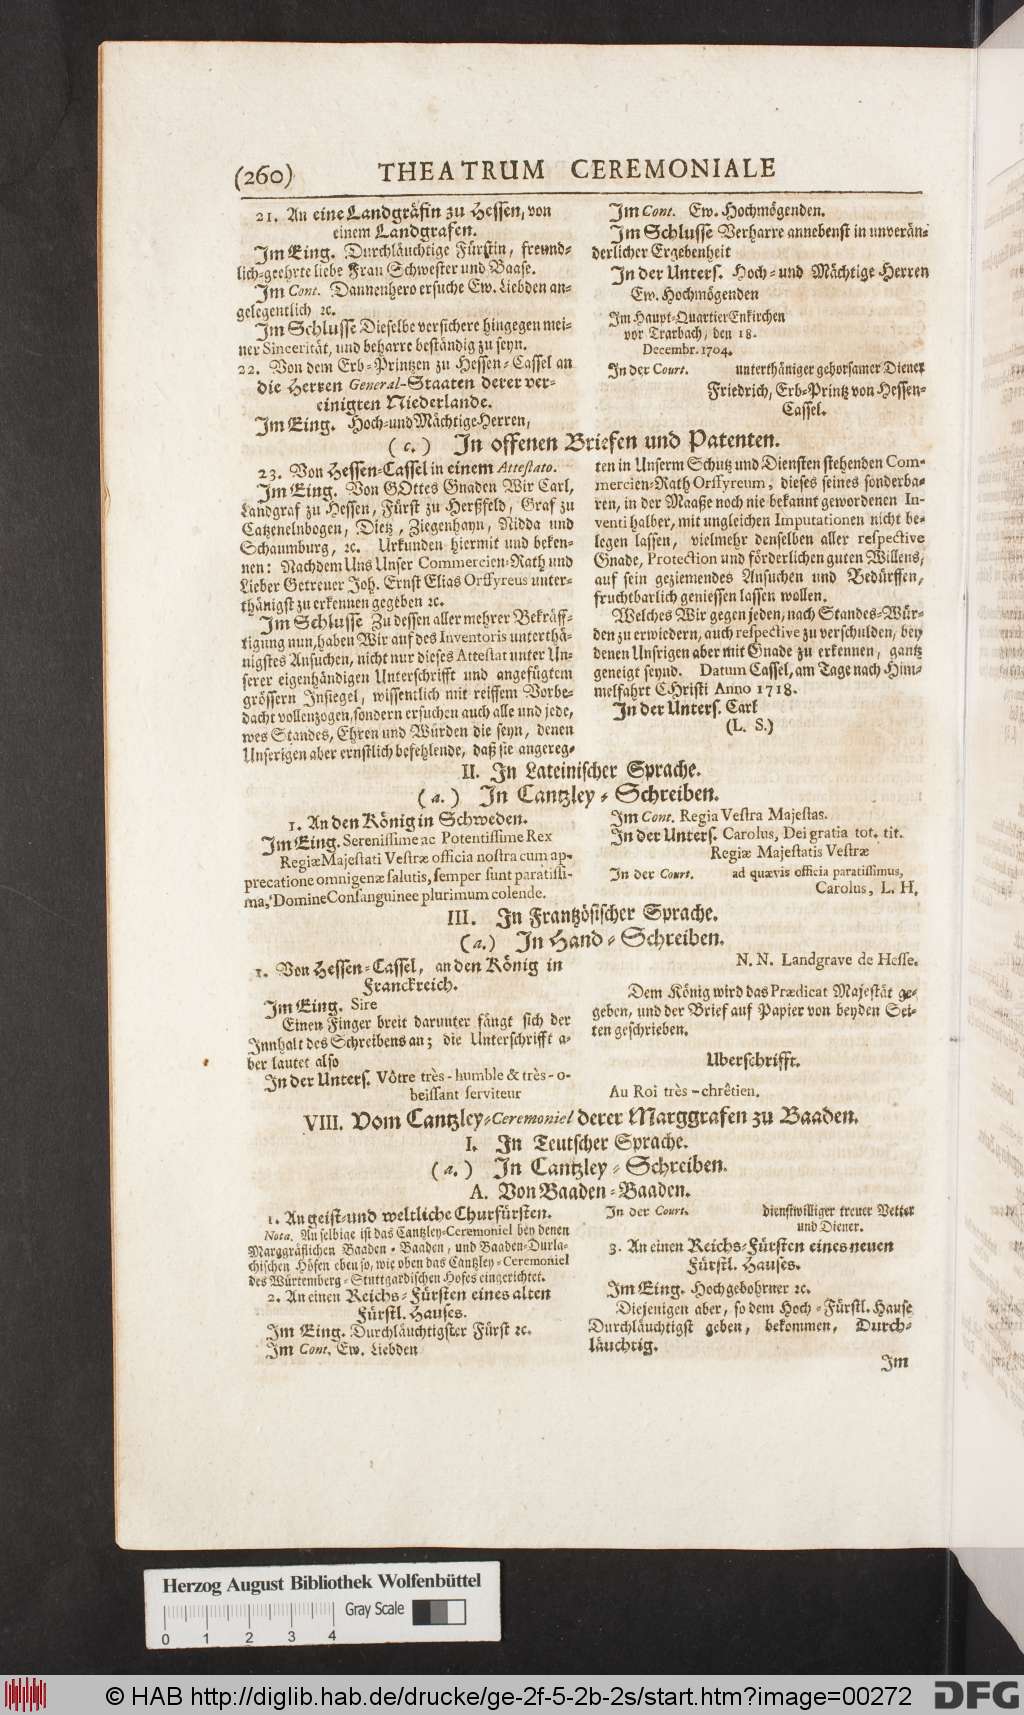 (260) THEATRUM CEREMONIALE
21. An eine Landgräfin zu Hessen, von
einem Landgrafen.
Im Eing. Durchläuchtige Fürstin, freund-
lich-geehrte liebe Frau Schwester und Baase.
Im Cont. Dannenhero ersuche Ew. Liebden an-
gelegentlich ꝛc.
Im Schlusse Dieselbe versichere hingegen mei-
ner Sincerität, und beharre beständig zu seyn.
22. Von dem Erb-Printzen zu Hessen-Cassel an
die Herren General-Staaten derer ver-
einigten Niederlande.
Im Eing. Hoch-und Mächtige Herren,
Im Cont. Ew. Hochmögenden.
Im Schlusse Verharre annebenst in unverän-
derlicher Ergebenheit
In der Unters. Hoch- und Mächtige Herren
Ew. Hochmögenden
Im Haupt-Quartier Enkirchen
vor Trarbach, den 18.
Decembr. 1704.
In der Court. unterthäniger gehorsamer Diener
Friedrich, Erb-Printz von Hessen-
Cassel.
(c.) In offenen Briefen und Patenten.
23. Von Hessen-Cassel in einem Attestato.
Im Eing. Von GOttes Gnaden Wir Carl,
Landgraf zu Hessen, Fürst zu Herßfeld, Graf zu
Catzenelnbogen, Dietz, Ziegenhayn, Nidda und
Schaumburg, ꝛc. Urkunden hiermit und beken-
nen: Nachdem Uns Unser Commercien-Rath und
Lieber Getreuer Joh. Ernst Elias Orffyreus unter-
thänigst zu erkennen gegeben ꝛc.
Im Schlusse Zu dessen aller mehrer Bekräff-
tigung nun, haben Wir auf des Inventoris unterthä-
nigstes Ansuchen, nicht nur dieses Attestat unter Un-
serer eigenhändigen Unterschrifft und angefügtem
grössern Insiegel, wissentlich mit reiffem Vorbe-
dacht vollenzogen, sondern ersuchen auch alle und jede,
wes Standes, Ehren und Würden die seyn, denen
Unserigen aber ernstlich befehlende, daß sie angereg-
ten in Unserm Schutz und Diensten stehenden Com-
mercien-Rath Orffyreum, dieses seines sonderba-
ren, in der Maaße noch nie bekannt gewordenen In-
venti halber, mit ungleichen Imputationen nicht be-
legen lassen, vielmehr denselben aller respective
Gnade, Protection und förderlichen guten Willens,
auf sein geziemendes Ansuchen und Bedürffen,
fruchtbarlich geniessen lassen wollen.
Welches Wir gegen jeden, nach Standes-Wür-
den zu erwiedern, auch respective zu verschulden, bey
denen Unsrigen aber mit Gnade zu erkennen, gantz
geneigt seynd. Datum Cassel, am Tage nach Him-
melfahrt CHristi Anno 1718.
In der Unters. Carl
(L. S.)
II. In Lateinischer Sprache.
(a.) In Cantzley-Schreiben.
1. An den König in Schweden.
Im Eing. Serenissime ac Potentissime Rex
Regiæ Majestati Vestræ officia nostra cum ap-
precatione omnigenæ salutis, semper sunt paratissi-
ma, Domine Consanguinee plurimum colende.
Im Cont. Regia Vestra Majestas.
In der Unters. Carolus, Dei gratia tot. tit.
Regiæ Majestatis Vestræ
In der Court. ad quævis officia paratissimus,
Carolus, L. H.
III. In Frantzösischer Sprache.
(a.) In Hand-Schreiben.
1. Von Hessen-Cassel, an den König in
Franckreich.
Im Eing. Sire
Einen Finger breit darunter fängt sich der
Innhalt des Schreibens an; die Unterschrifft a-
ber lautet also
In der Unters. Vôtre très-humble & très-o-
beissant serviteur
N. N. Landgrave de Hesse.
Dem König wird das Prædicat Majestät ge-
geben, und der Brief auf Papier von beyden Sei-
ten geschrieben.
Uberschrifft.
Au Roi très-chrêtien.
VIII. Vom Cantzley-Ceremoniel derer Marggrafen zu Baaden.
I. In Teutscher Sprache.
(a.) In Cantzley-Schreiben.
A. Von Baaden-Baaden.
1. An geist-und weltliche Churfürsten.
Nota. An selbige ist das Cantzley-Ceremoniel bey denen
Marggräflichen Baaden-Baaden, und Baaden-Durla-
chischen Höfen eben so, wie oben das Cantzley-Ceremoniel
des Würtemberg-Stuttgardischen Hofes eingerichtet.
2. An einen Reichs-Fürsten eines alten
Fürstl. Hauses.
Im Eing. Durchläuchtigster Fürst ꝛc.
Im Cont. Ew. Liebden
In der Court. dienstwilliger treuer Vetter
und Diener.
3. An einen Reichs-Fürsten eines neuen
Fürstl. Hauses.
Im Eing. Hochgebohrner ꝛc.
Diejenigen aber, so dem Hoch-Fürstl. Hause
Durchläuchtigst geben, bekommen, Durch-
läuchtig.
Im
Herzog August Bibliothek Wolfenbüttel
Gray Scale
0 1 2 3 4
© HAB http://diglib.hab.de/drucke/ge-2f-5-2b-2s/start.htm?image=00272
DFG